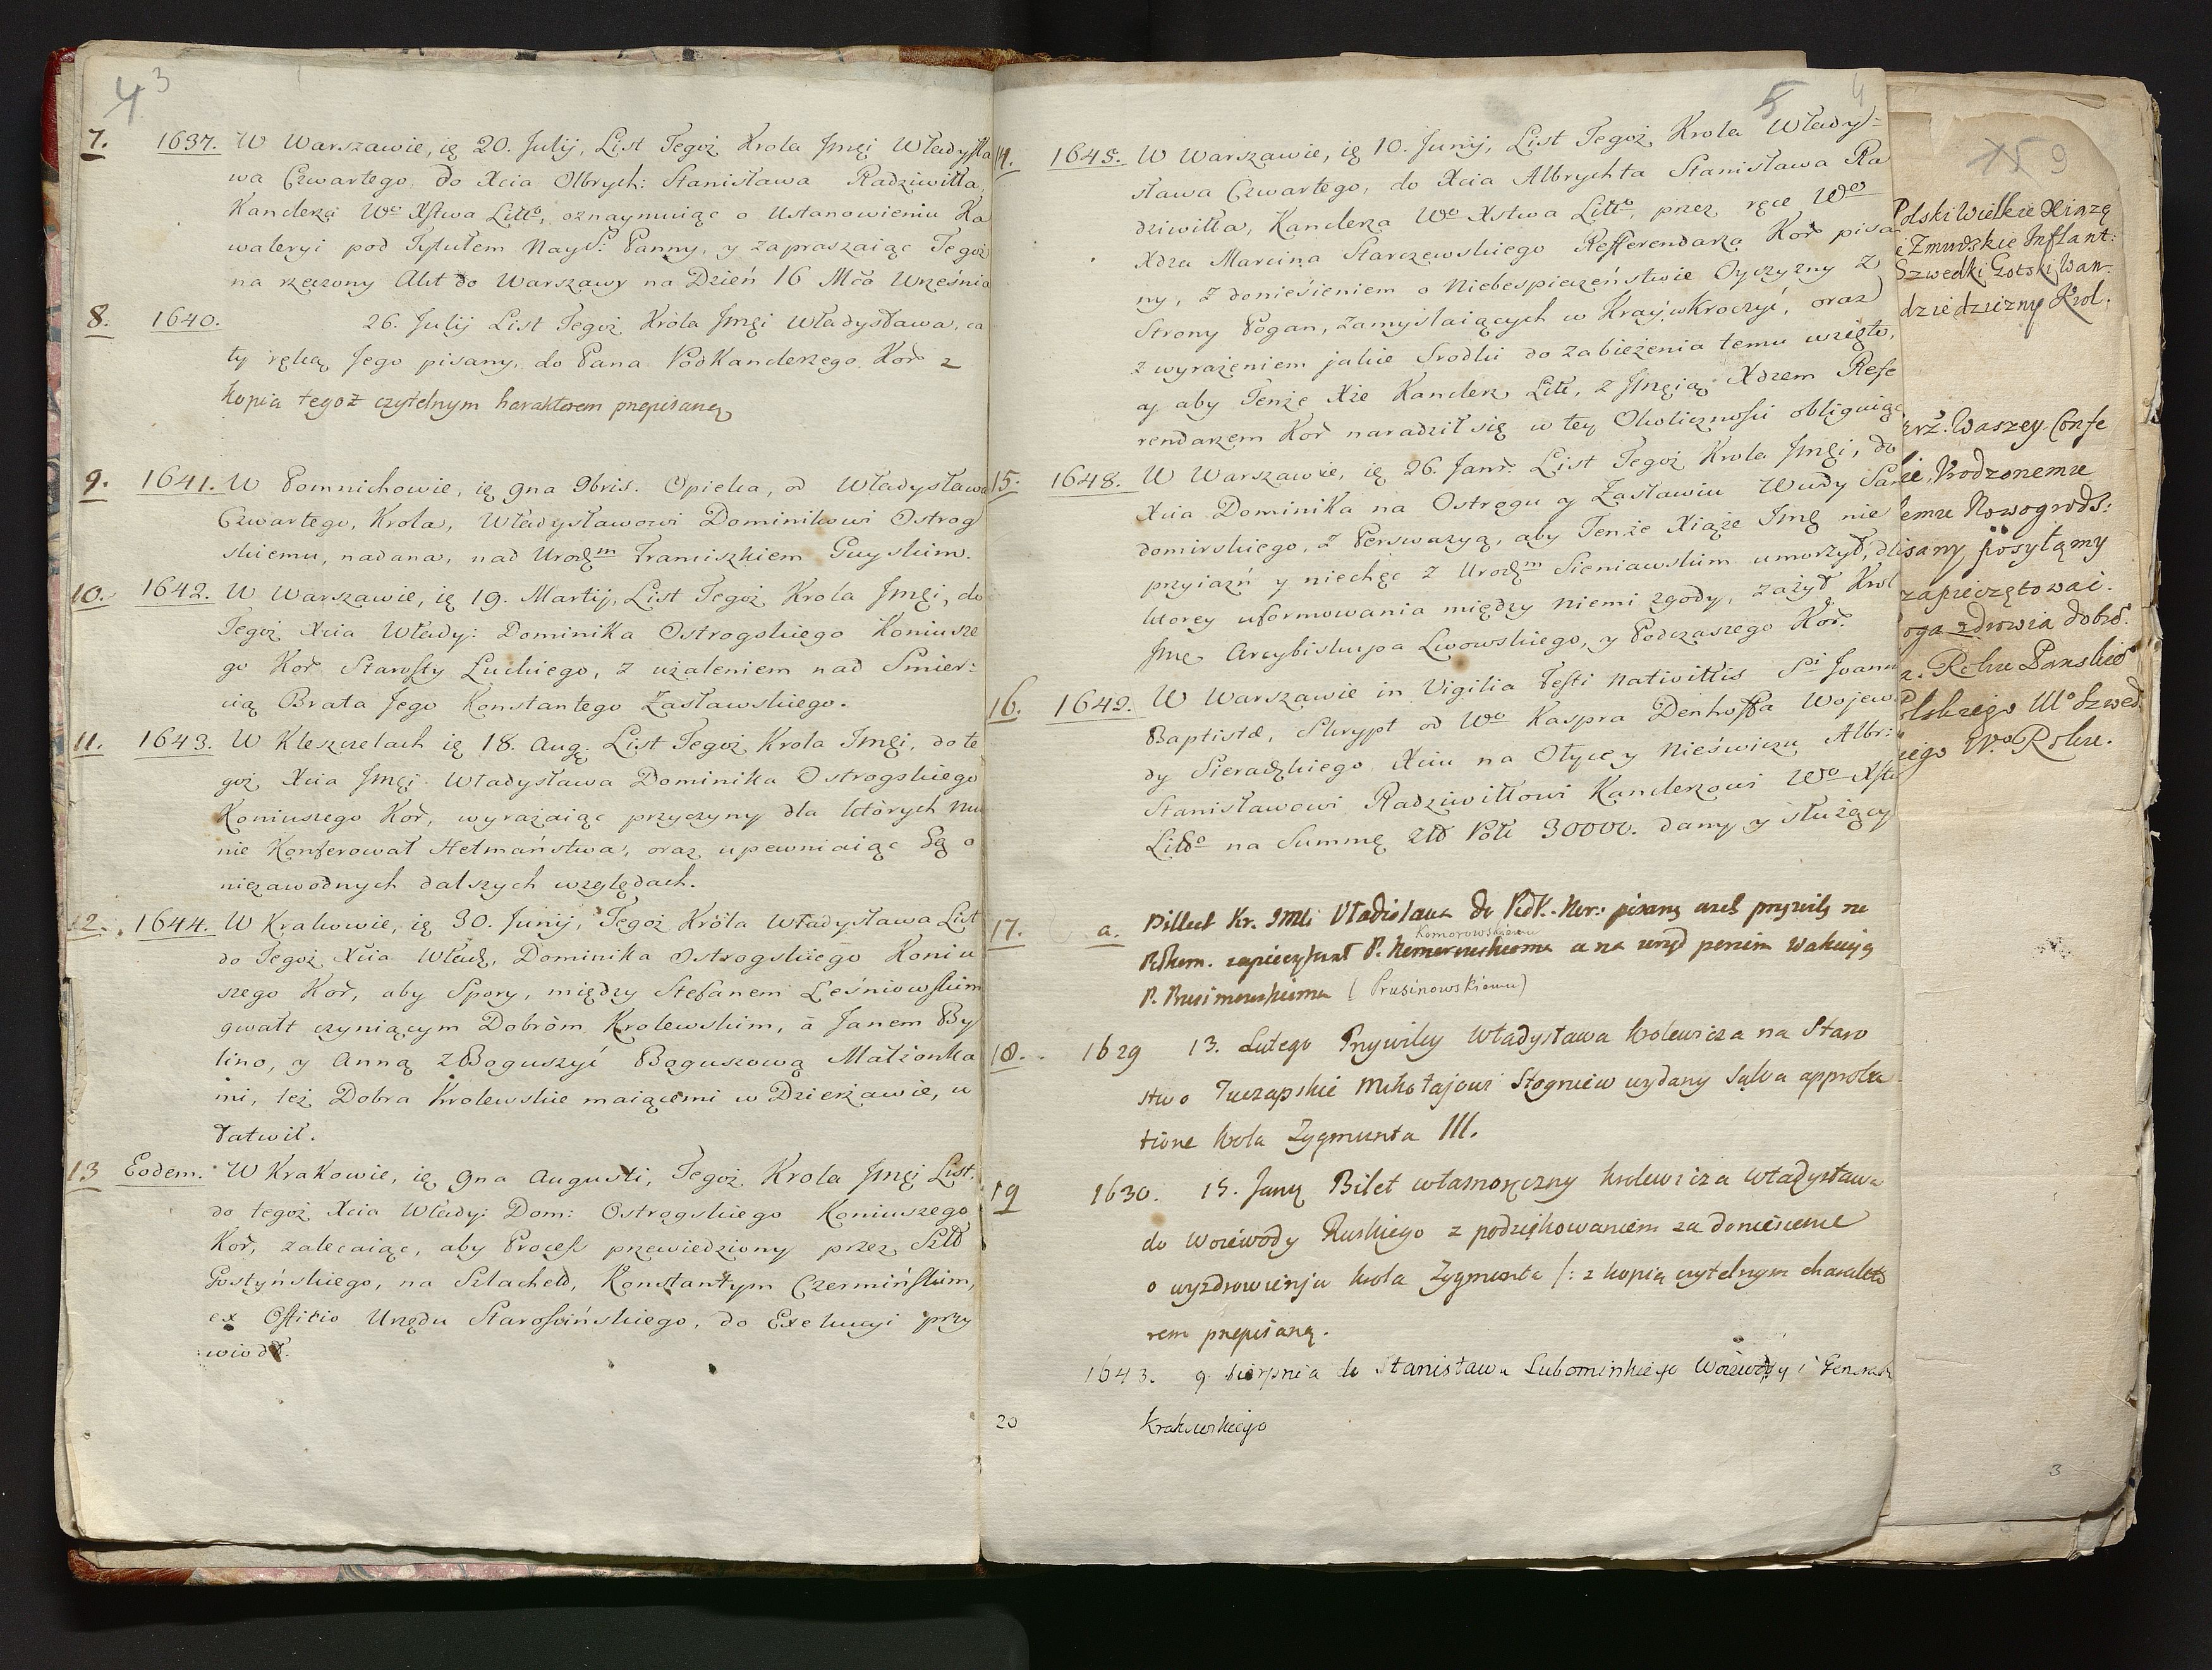 4 3
7. 1637. W Warszawie, ię 20. Julij, List Tegoż Krola Jmci Władysła
wa Czwartego, do Xcia Olbrych: Stanisława Radziwiłła,
Kanclerza Wo Xstwa Litto, oznaymuiąc o Ustanowieniu Ka
waleryi pod Tytułem Nays: Panny, y zapraszaiąc Tegoż
na rzeczony Akt do Warszawy na Dzień 16 Mca Wrześnią
8. 1640. 26. Julij List Tegoż Króla Jmci Władysława, ca
ły ręką Jego pisany, do Pana PodKanclerzego Kor z
kopią tegoż czytelnym harakterem przepisaną
9. 1641. W Pomnichowie, ię 9na 9bris. Opieka, od Władysława
Czwartego, Krola, Władysławowi Dominikowi Ostrog
skiemu, nadana, nad Urodzm Franciszkiem Guyskim.
10. 1642. W Warszawie, ię 19. Martij, List Tegoż Krola Jmci, do
Tegoż Xcia Włady: Dominika Ostrogskiego Koniusze
go Kor Starosty Łuckiego, z użaleniem nad Smier:
cią Brata Jego Konstantego Zasławskiego.
11. 1643. W Kleszczelach ię 18. Aug. List Tegoż Krola Jmci, do te
goż Xcia Jmci Władysława Dominika Ostrogskiego
Koniuszego Kor, wyrażaiąc przyczyny dla których mu
nie Konferował Hetmaństwa, oraz upewniaiąc Go o
niezawodnych dalszych względach.
12. 1644. W Krakowie, ię 30. Junij, Tegoż Króla Władysława List
do Tegoż Xcia Wład, Dominika Ostrogskiego Koniu
szego Kor, aby Spory, między Stefanem Leśniowskim
gwałt czyniącym Dobróm Krolewskim, à Janem By
lino, y Anną z Boguszyć Boguszową Małżonka
mi, też Dobra Krolewskie maiącemi w Dzierżawie, u
łatwił.
13 Eodem. W Krakowie, ię 9na Augusti, Tegoż Krola Jmci List.
do tegoż Xcia Włady: Dom: Ostrogskiego Koniuszego
Kor, zalecaiąc, aby Process przewiedziony przez Szld
Gostyńskiego, na Szlached, Konstantym Czermińskim,
ex Officio Urzędu Starościńskiego, do Exekucyi przy
wiodł.
5 4
14. 1645. W Warszawie, ię 10. Junij, List Tegoż Krola Włady:
sława Czwartego, do Xcia Albrychta Stanisława Ra
dziwiłła, Kanclerza Wo Xstwa Litto, przez ręce Wo
Xdza Marcina Starczewskiego Refferendarza Kor pisa
ny, z doniesieniem o Niebespieczeństwie Oyczyzny z
Strony Pogan, zamyślaiących w Kray wKroczyć, oraz
z wyrażeniem jakie Srodki do zabieżenia temu wzięto,
y aby Tenże Xże Kanclerz Litt, z Jmcią Xdzem Refe
rendarzem Kor naradził się w tey Okolicznosci obliguiąc
15. 1648. W Warszawie, ię 26. Janr. List Tegoż Krola Jmci, do
Xcia Dominika na Ostrogu y Zasławiu Wwdy San
domirskiego, z Perswazyą, aby Tenże Xiąże Jmc nie
przyiaźń y niechęc z Urodzm Sieniawskim umorzył, dla
ktorey uformowania między niemi zgody, zażył Krol
Jmc Arcybiskupa Lwowskiego, y Podczaszego Kor.
16. 1642. W Warszawie in Vigilia Festi Nativittis Si Joann
Baptistæ, Skrypt od Wo Kaspra Denhoffa Wojewo
dy Sieradzkiego Xciu na Ołyce y Nieświczu Albr:
Stanisławowi Radziwiłłowi Kanclerzowi Wo Xstw
Litto na Summę Złt Polł 30000. dany y służący
17. a. Billiet Kr. JMci Vladislawa do Pdk. Kor: pisany azeb przywiley na
Komorowskiemu
zapieczętował P. Komorowskiemu a na urząd wakuią
P. Prusinowskiemu (Prusinowskiemu)
18. 1629 13. Lutego Przywiley Władysława krolewicza na Staro
stwo Tuczapskie Mikołajowi Stogniew wydany salva approba
tione krola Zygmunta III.
19 1630. 15. Janu Bilet własnoręczny krolewicza Władysława
do Woiewody Ruskiego z podziękowaniem za doniesienie
o wyzdrowieniu krola Zygmunta /: z kopią czytelnym charakte
rem przepisaną.
1643. 9 sierpnia do Stanisława Lubomirskiego Woiewody i Generała
20 Krakowskiego
9
Polski Wielkie Xiązę
Zmudskie Inflant:
Szwedki Gotski Wan-
dziedziczny Krol.
Waszey Confe
Vrodzonemu
Nowogrods:
posyłamy
zapieczętować.
zdrowia dobro.
Roku Panskieo
Szwed.
Roku.
3